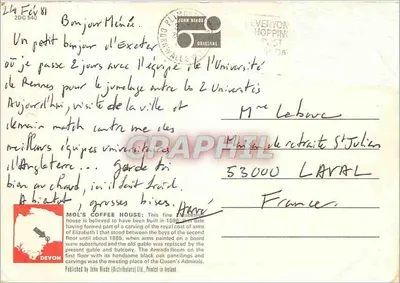 24 Fév 81
2DC 540
Bonjour Mémée.
Un petit bonjour d'Exeter
où je passe 2 jours avec l'équipe de l'Université
de Rennes pour le jumelage entre les 2 Universités
Aujourd'hui, visite de la ville et
demain match contre une des
meilleurs équipes universitaires
d'Angleterre... garde toi
bien au chaud, ici il fait froid.
A bientot, grosses bises.
Hervé
JOHN HINDE
ORIGINAL
EVERYON
SHOPPIN
Mme Lebouc
Maison de retraite St Julien
53000 LAVAL
France.
DELCAMPHIL
DEVON
MOL'S COFFEE HOUSE: This fine
house is believed to have been built in 1596, this date
having formed part of a carving of the royal coat of arms
of Elizabeth I that stood between the bays of the second
floor until about 1880, when arms painted on a board
were substituted and the old gable was replaced by the
present gable and balcony. The Armada Room on the
first floor with its handsome black oak panellings and
carvings was the meeting place of the Queen's Admirals.
Published by John Hinde (Distributors) Ltd., Printed in Ireland.